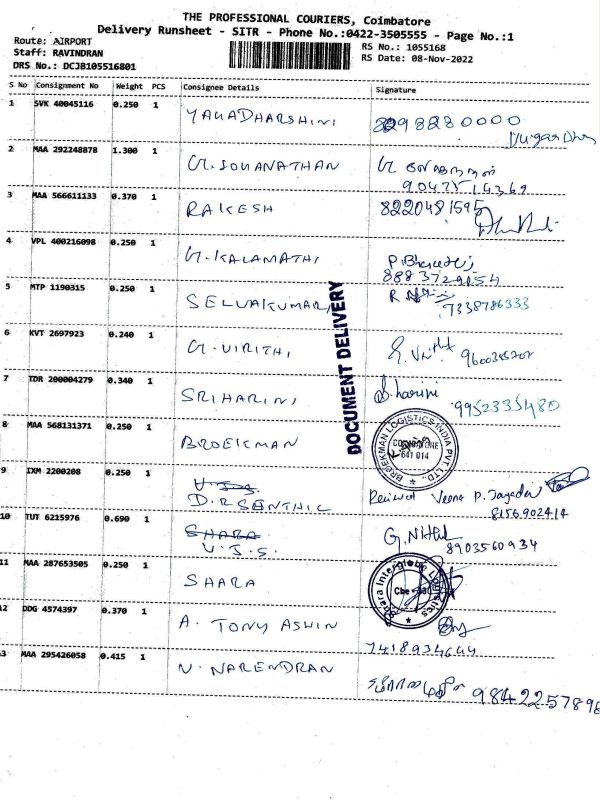 THE PROFESSIONAL COURIERS, Coimbatore
Delivery Runsheet - SITR - Phone No.:0422-3505555 - Page No.:1
Route: AIRPORT
Staff: RAVINDRAN
DRS No.: DCJB105516801
RS No.: 1055168
RS Date: 08-Nov-2022
S No Consignment No Weight PCS Consignee Details Signature
1 SVK 40045116 0.250 1 YAGADHARSHINI 8298280000
2 MAA 292248878 1.300 1 G.SOMANATHAN
3 MAA 566611133 0.370 1 RAKESH 8220481595
4 VPL 400216098 0.250 1 G.KALAMATHI
5 MTP 1190315 0.250 1 SELVAKUMAR 7338786333
6 KVT 2697923 0.240 1 G.VIRITHI
7 IDR 200004279 0.340 1 SRIHARINI S.harini 9952335480
8 MAA 568131371 0.250 1 BROEKMAN
BROEKMAN LOGISTICS INDIA PVT. LTD.
COIMBATORE
641 014
9 IXM 2200208 0.250 1 V.J.S.
D.R SENTHIL 8156902414
10 TUT 6215976 0.690 1 SHARA
V.J.S. 8903560934
11 MAA 287653505 0.250 1 SHARA
Interglobe Logistics
12 DDG 4574397 0.370 1 A. TONY ASWIN
7418934644
13 MAA 295426058 0.415 1 N. NARENDRAN
DOCUMENT DELIVERY